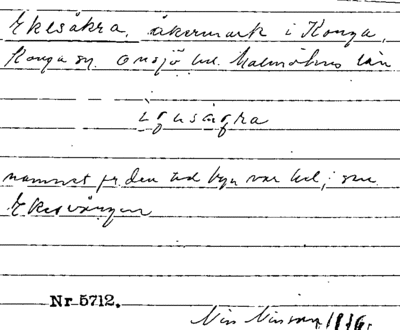 Ekesåkra, åkermark i Konga,
Konga sn. Onsjö hd. Malmöhus län
namnet fr den tid byn var hel, i sme
Ekesvången
Nr 5712.
Nils Nilsson 1936.